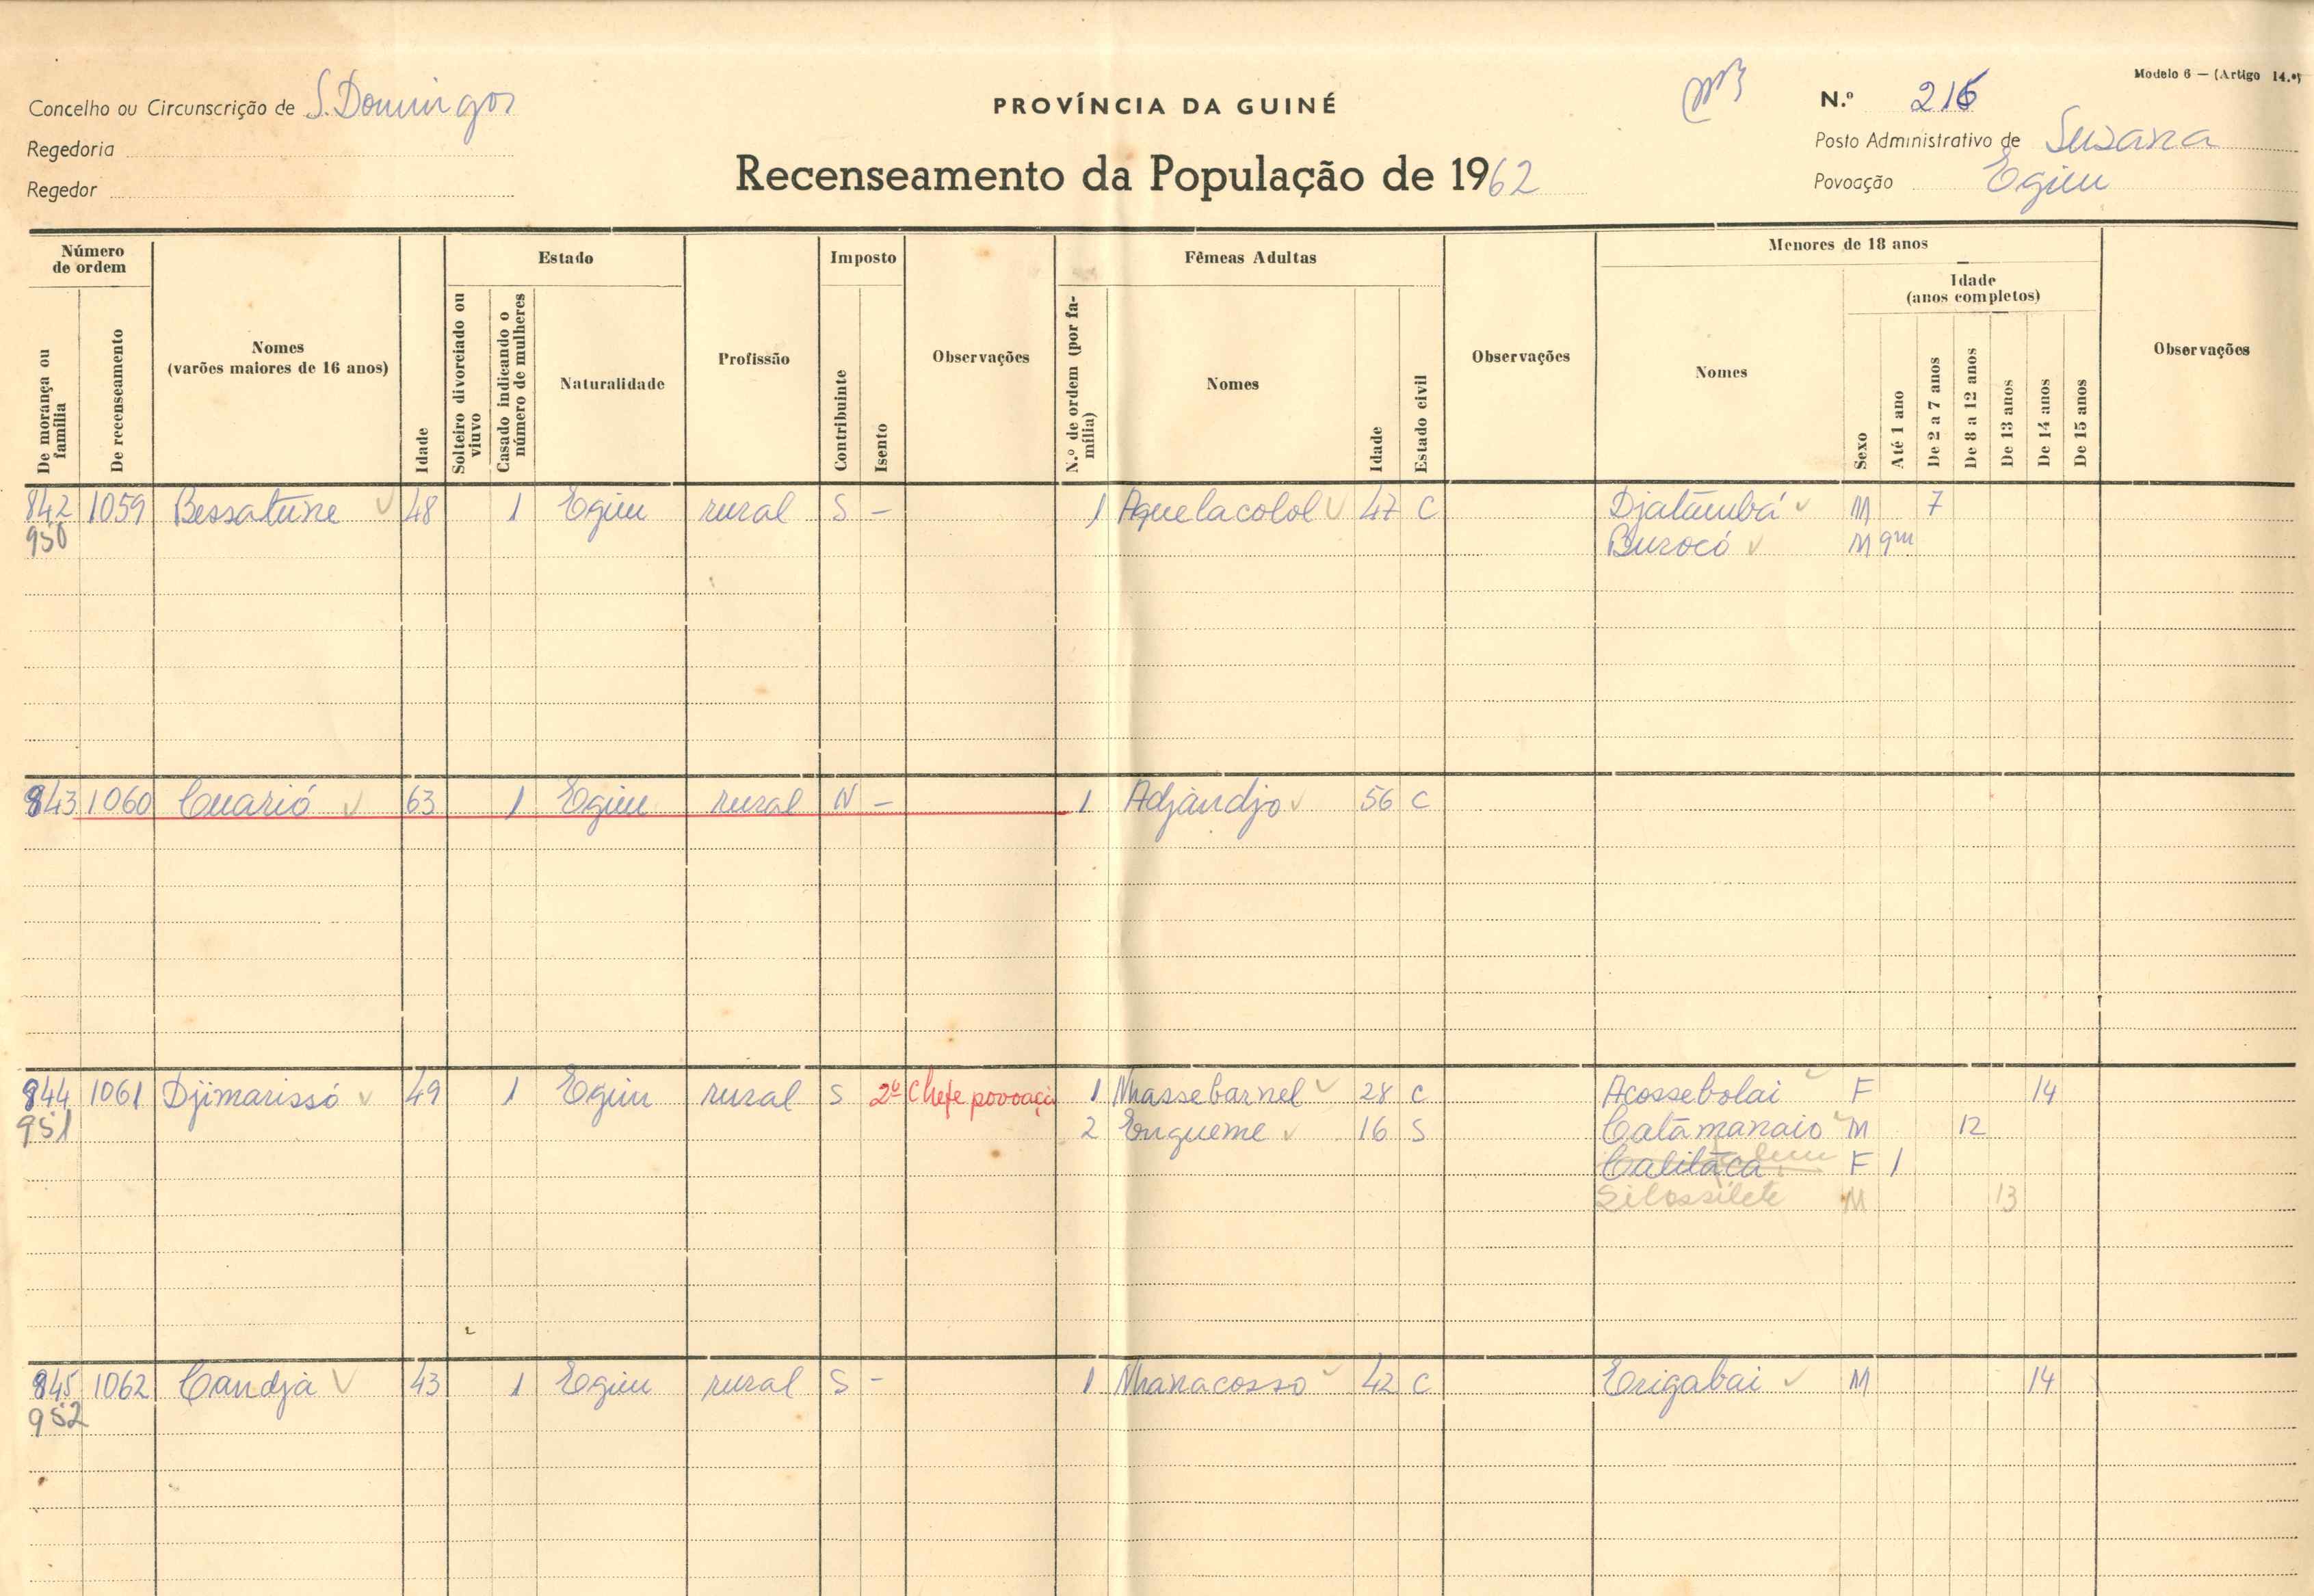 Modelo 6 — (Artigo 14.º)
Concelho ou Circunscrição de S. Domingos
PROVÍNCIA DA GUINÉ
N.º 216
Regedoria
Posto Administrativo de Suzana
Regedor
Recenseamento da População de 1962
Povoação Egim
Número de ordem
De morança ou família
De recenseamento
Nomes (varões maiores de 16 anos)
Idade
Estado
Solteiro divorciado ou viuvo
Casado indicando o número de mulheres
Naturalidade
Profissão
Imposto
Contribuinte
Isento
Observações
Fêmeas Adultas
N.º de ordem (por família)
Nomes
Idade
Estado civil
Observações
Menores de 18 anos
Nomes
Sexo
Idade (anos completos)
Até 1 ano
De 2 a 7 anos
De 8 a 12 anos
De 13 anos
De 14 anos
De 15 anos
Observações
842 1059 Bessatune 48 1 Egim rural S - 1 Aquelacolol 47 C Djatâmbá M 7
950 Burocó M 9m
843 1060 Cuarió 63 1 Egim rural N - 1 Adjàndjo 56 C
844 1061 Djimarissó 49 1 Egim rural S 2º Chefe povoaçã 1 Nhassebarnel 28 C Acossebolai F 14
951 2 Engueme 16 S Catâmanaio M 12
Calilàca F 1
Silossilete M 13
845 1062 Candjà 43 1 Egim rural S - 1 Nhanacosso 42 C Erigabai M 14
952